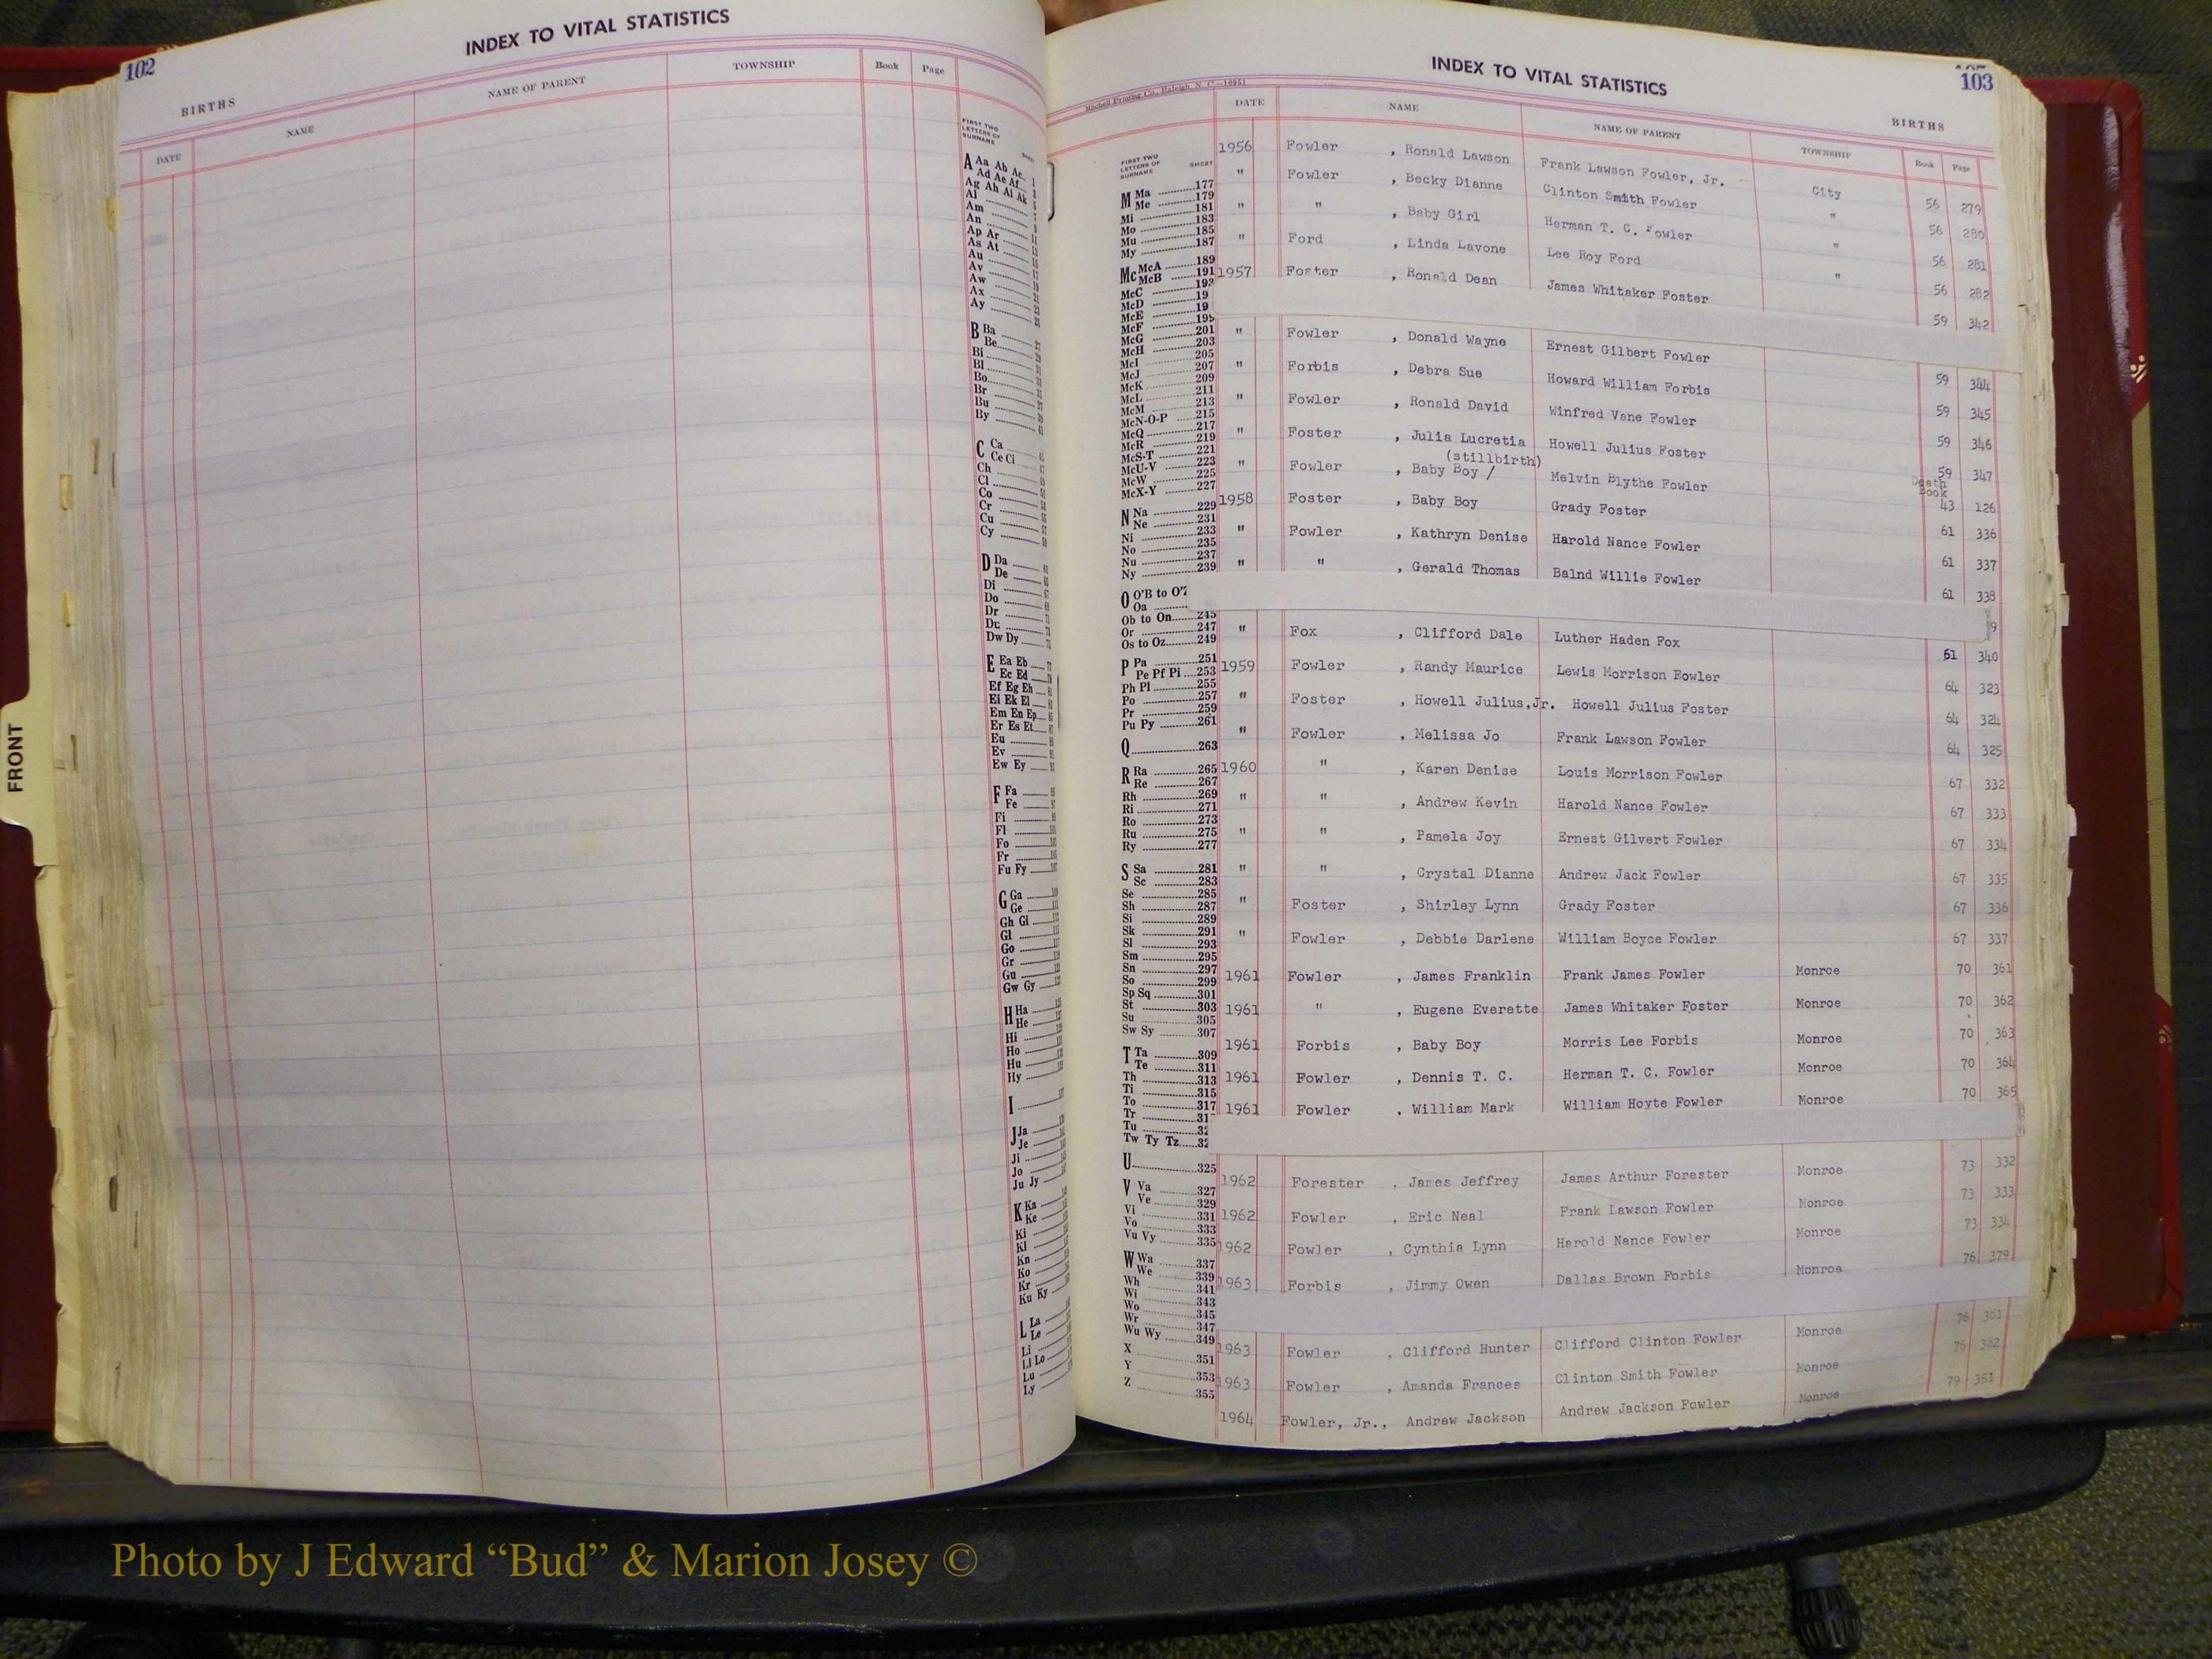 INDEX TO VITAL STATISTICS
102
BIRTHS
DATE
NAME
NAME OF PARENT
TOWNSHIP
Book
Page
FIRST TWO LETTERS OF SURNAME
SHEET
A Aa Ab Ac
Ad Ae Af
Ag Ah Ai Ak
Al
Am
An
Ap Ar
As At
Au
Av
Aw
Ax
Ay
B Ba
Be
Bi
Bl
Bo
Br
Bu
By
C Ca
Ce Ci
Ch
Cl
Co
Cr
Cu
Cy
D Da
De
Di
Do
Dr
Du
Dw Dy
E Ea Eb
Ec Ed
Ef Eg Eh
Ei Ek El
Em En Ep
Er Es Et
Eu
Ev
Ew Ey
F Fa
Fe
Fi
Fl
Fo
Fr
Fu Fy
G Ga
Ge
Gh Gi
Gl
Go
Gr
Gu
Gw Gy
H Ha
He
Hi
Ho
Hu
Hy
I
J Ja
Je
Ji
Jo
Ju Jy
K Ka
Ke
Ki
Kl
Kn
Ko
Kr
Ku Ky
L La
Le
Li
Ll Lo
Lu
Ly
FRONT
INDEX TO VITAL STATISTICS
103
Mitchell Printing Co., Raleigh, N. C.—10951
BIRTHS
DATE
NAME
NAME OF PARENT
TOWNSHIP
Book
Page
FIRST TWO LETTERS OF SURNAME
SHEET
M Ma 177
Me 179
Mi 181
Mo 183
Mu 185
My 187
Mc McA 189
McB 191
McC 193
McD 19
McE 19
McF 199
McG 201
McH 203
McI 205
McJ 207
McK 209
McL 211
McM 213
McN-O-P 215
McQ 217
McR 219
McS-T 221
McU-V 223
McW 225
McX-Y 227
N Na 229
Ne 231
Ni 233
No 235
Nu 237
Ny 239
O O'B to O'Z
Oa
Ob to On 245
Or 247
Os to Oz 249
P Pa 251
Pe Pf Pi 253
Ph Pl 255
Po 257
Pr 259
Pu Py 261
Q 263
R Ra 265
Re 267
Rh 269
Ri 271
Ro 273
Ru 275
Ry 277
S Sa 281
Sc 283
Se 285
Sh 287
Si 289
Sk 291
Sl 293
Sm 295
Sn 297
So 299
Sp Sq 301
St 303
Su 305
Sw Sy 307
T Ta 309
Te 311
Th 313
Ti 315
To 317
Tr 31
Tu 32
Tw Ty Tz 32
U 325
V Va 327
Ve 329
Vi 331
Vo 333
Vu Vy 335
W Wa 337
We 339
Wh 341
Wi 343
Wo 345
Wr 347
Wu Wy 349
X 351
Y 353
Z 355
1956 Fowler , Ronald Lawson Frank Lawson Fowler, Jr. City 56 279
" Fowler , Becky Dianne Clinton Smith Fowler " 56 280
" " , Baby Girl Herman T. C. Fowler " 56 281
" Ford , Linda Lavone Lee Roy Ford " 56 282
1957 Foster , Ronald Dean James Whitaker Foster 59 342
" Fowler , Donald Wayne Ernest Gilbert Fowler 59 344
" Forbis , Debra Sue Howard William Forbis 59 345
" Fowler , Ronald David Winfred Vane Fowler 59 346
" Foster , Julia Lucretia Howell Julius Foster 59 347
(stillbirth)
" Fowler , Baby Boy / Melvin Blythe Fowler Death Book 43 126
1958 Foster , Baby Boy Grady Foster 61 336
" Fowler , Kathryn Denise Harold Nance Fowler 61 337
" " , Gerald Thomas Balnd Willie Fowler 61 338
9
" Fox , Clifford Dale Luther Haden Fox 61 340
1959 Fowler , Randy Maurice Lewis Morrison Fowler 64 323
" Foster , Howell Julius,Jr. Howell Julius Foster 64 324
" Fowler , Melissa Jo Frank Lawson Fowler 64 325
1960 " , Karen Denise Louis Morrison Fowler 67 332
" " , Andrew Kevin Harold Nance Fowler 67 333
" " , Pamela Joy Ernest Gilvert Fowler 67 334
" " , Crystal Dianne Andrew Jack Fowler 67 335
" Foster , Shirley Lynn Grady Foster 67 336
" Fowler , Debbie Darlene William Boyce Fowler 67 337
1961 Fowler , James Franklin Frank James Fowler Monroe 70 361
1961 " , Eugene Everette James Whitaker Foster Monroe 70 362
1961 Forbis , Baby Boy Morris Lee Forbis Monroe 70 363
1961 Fowler , Dennis T. C. Herman T. C. Fowler Monroe 70 364
1961 Fowler , William Mark William Hoyte Fowler Monroe 70 365
1962 Forester , James Jeffrey James Arthur Forester Monroe 73 332
1962 Fowler , Eric Neal Frank Lawson Fowler Monroe 73 333
1962 Fowler , Cynthia Lynn Harold Nance Fowler Monroe 73 334
1963 Forbis , Jimmy Owen Dallas Brown Forbis Monroe 76 379
1963 Fowler , Clifford Hunter Clifford Clinton Fowler Monroe 76 381
1963 Fowler , Amanda Frances Clinton Smith Fowler Monroe 76 382
1964 Fowler, Jr., Andrew Jackson Andrew Jackson Fowler Monroe 79 351
Photo by J Edward “Bud” & Marion Josey ©